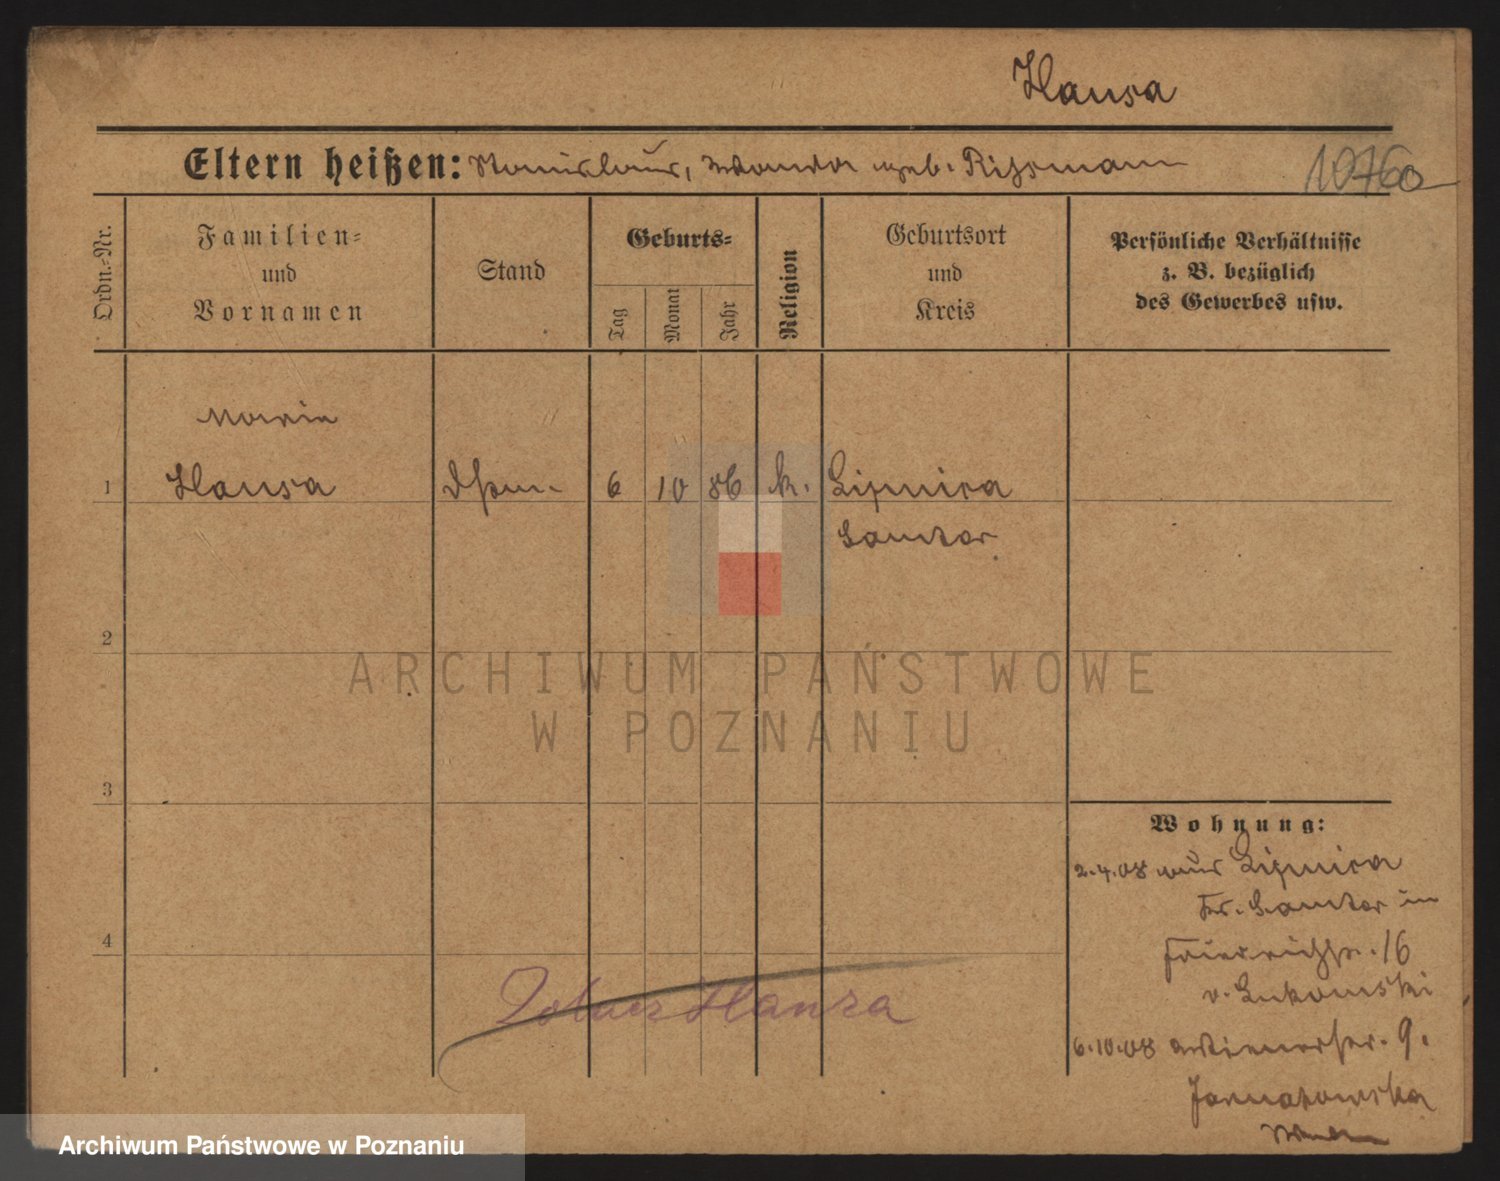 Hansa
Eltern heißen: Stanislaus, Wanda geb. Rißmann
10760
Ordn.-Nr.
Familien- und Vornamen
Stand
Geburts-
Tag
Monat
Jahr
Religion
Geburtsort und Kreis
Persönliche Verhältnisse z. B. bezüglich des Gewerbes usw.
Maria
1 Hansa 6 10 86 k. Lipnica
Samter
2
3
4
Wohnung:
2.4.08 aus Lipnica
Kr. Samter in
Friedrichstr. 16
v. Lukomski
6.10.08 Wienerstr. 9.
Zobacz Hanza
ARCHIWUM PAŃSTWOWE
W POZNANIU
Archiwum Państwowe w Poznaniu